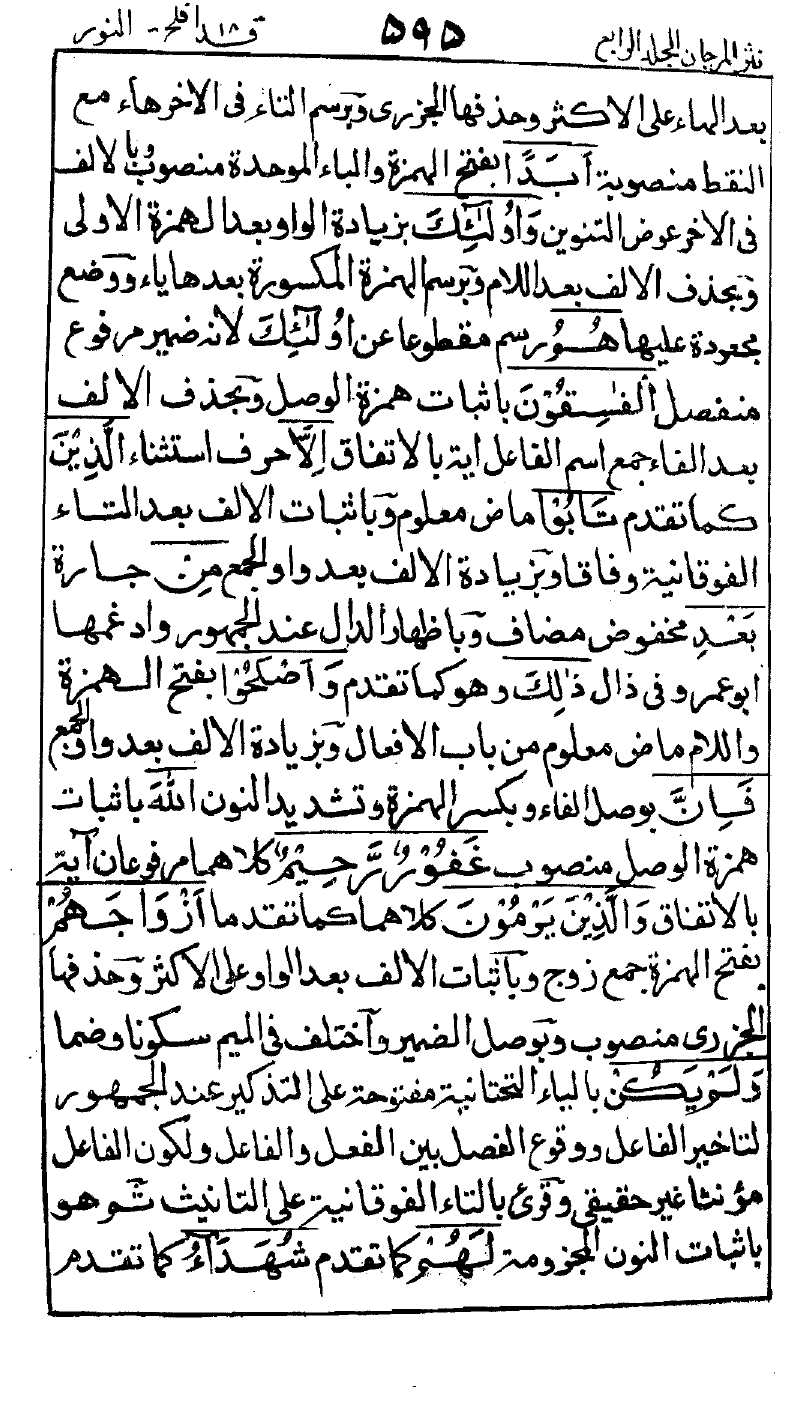 نثر المرجان المجلد الرابع ٥٩٥ قد افلح ١٨ - النور
بعد الهاء على الاكثر وحذفها الجزرى وبرسم التاء فى الاخر هاء مع
النقط منصوبة أَبَدًا بفتح الهمزة والباء الموحدة منصوب بالالف
فى الاخر عوض التنوين وَأُولَٰئِكَ بزيادة الواو بعد الهمزة الاولى
وبحذف الالف بعد اللام وبرسم الهمزة المكسورة بعدها ياء ووضع
مجعودة عليها هُمُ رسم مقطوعا عن أُولَٰئِكَ لانه ضمير مرفوع
منفصل الْفٰسِقُوْنَ باثبات همزة الوصل وبحذف الالف
بعد الفاء جمع اسم الفاعل اية بالاتفاق اِلَّا حرف استثناء الَّذِيْنَ
كما تقدم تَابُوْا ماض معلوم وباثبات الالف بعد التاء
الفوقانية وفاقا وبزيادة الالف بعد واو الجمع مِنْ جارة
بَعْدِ مخفوض مضاف وباظهار الدال عند الجمهور وادغمها
ابو عمرو فى ذال ذٰلِكَ وهو كما تقدم وَاَصْلَحُوْا بفتح الهمزة
واللام ماض معلوم من باب الافعال وبزيادة الالف بعد واو الجمع
فَاِنَّ بوصل الفاء وبكسر الهمزة وتشديد النون اللّٰهَ باثبات
همزة الوصل منصوب غَفُوْرٌ رَّحِيْمٌ كلاهما مرفوعان آية
بالاتفاق وَالَّذِيْنَ يَرْمُوْنَ كلاهما كما تقدما اَزْوَاجَهُمْ
بفتح الهمزة جمع زوج وباثبات الالف بعد الواو على الاكثر وحذفها
الجزرى منصوب وبوصل الضمير واختلف فى الميم سكونا وضما
وَلَمْ يَكُنْ بالياء التحتانية مفتوحة على التذكير عند الجمهور
لتاخير الفاعل ووقوع الفصل بين الفعل والفاعل ولكون الفاعل
مؤنثا غير حقيقى وقرئ بالتاء الفوقانية على التانيث ثم هو
باثبات النون المجزومة لَهُمْ كما تقدم شُهَدَآءُ كما تقدم